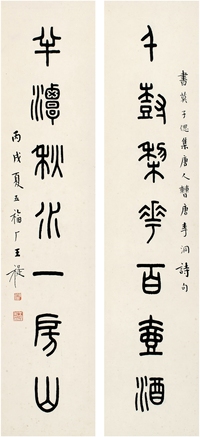 書莫子偲集唐人曹唐李洞詩句
千樹梨華百壺酒
半潭秋水一房山
丙戌夏五福厂王禔